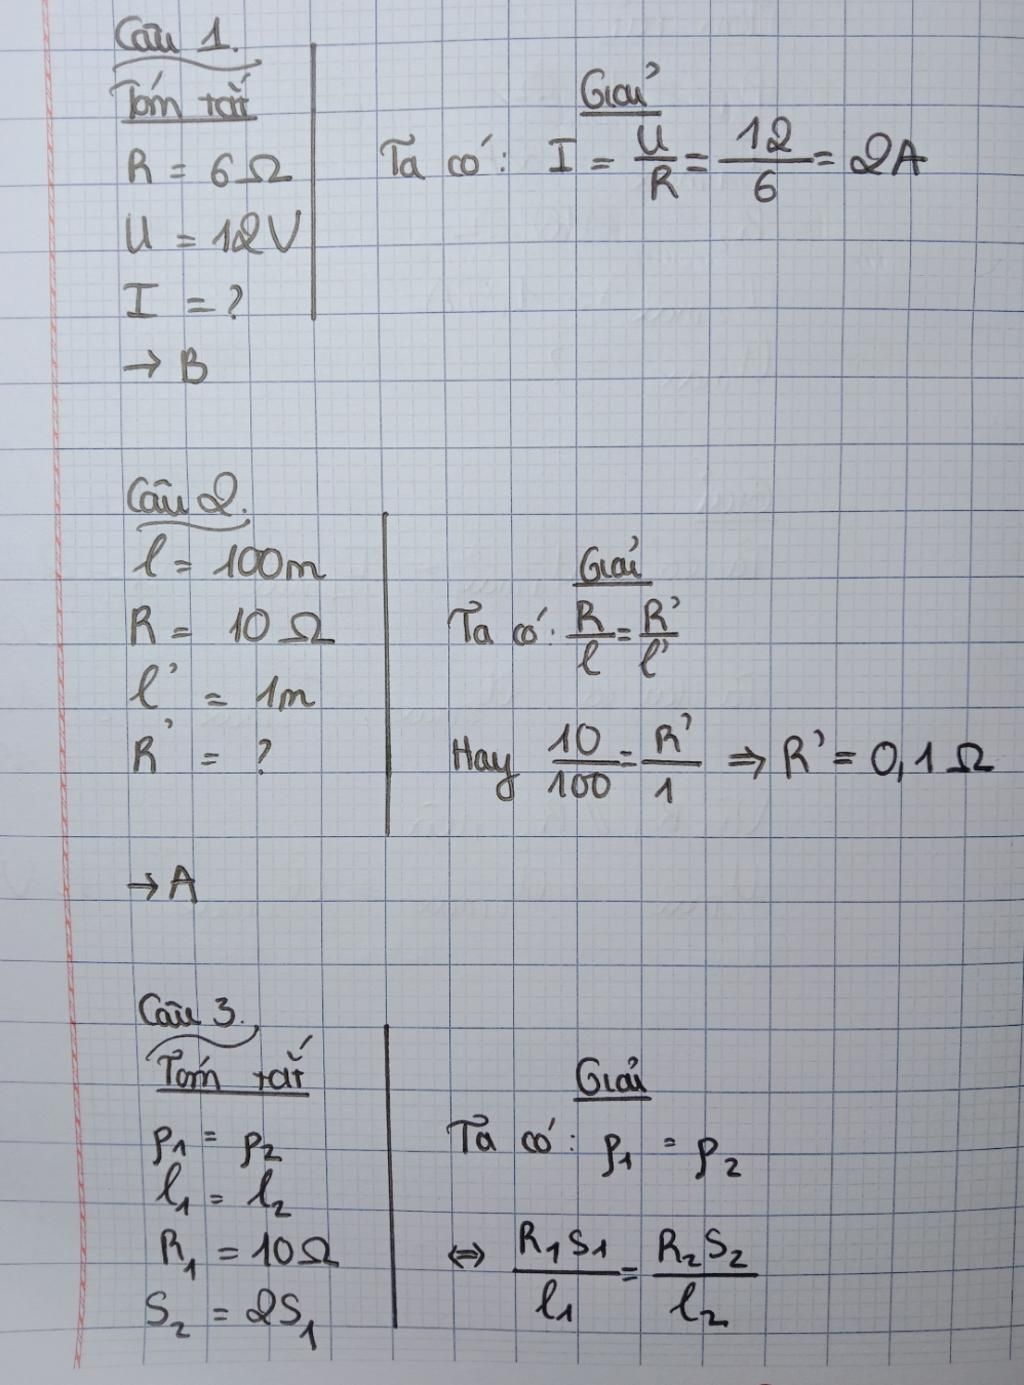 Câu 1.
Tóm tắt
R = 6Ω
U = 12V
I = ?
→ B
Giải
Ta có: I = U/R = 12/6 = 2A
Câu 2.
l = 100m
R = 10Ω
l' = 1m
R' = ?
→ A
Giải
Ta có: R/l = R'/l'
Hay 10/100 = R'/1 ⇒ R' = 0,1Ω
Câu 3.
Tóm tắt
ρ₁ = ρ₂
l₁ = l₂
R₁ = 10Ω
S₂ = 2S₁
Giải
Ta có: ρ₁ = ρ₂
⇔ R₁S₁/l₁ = R₂S₂/l₂